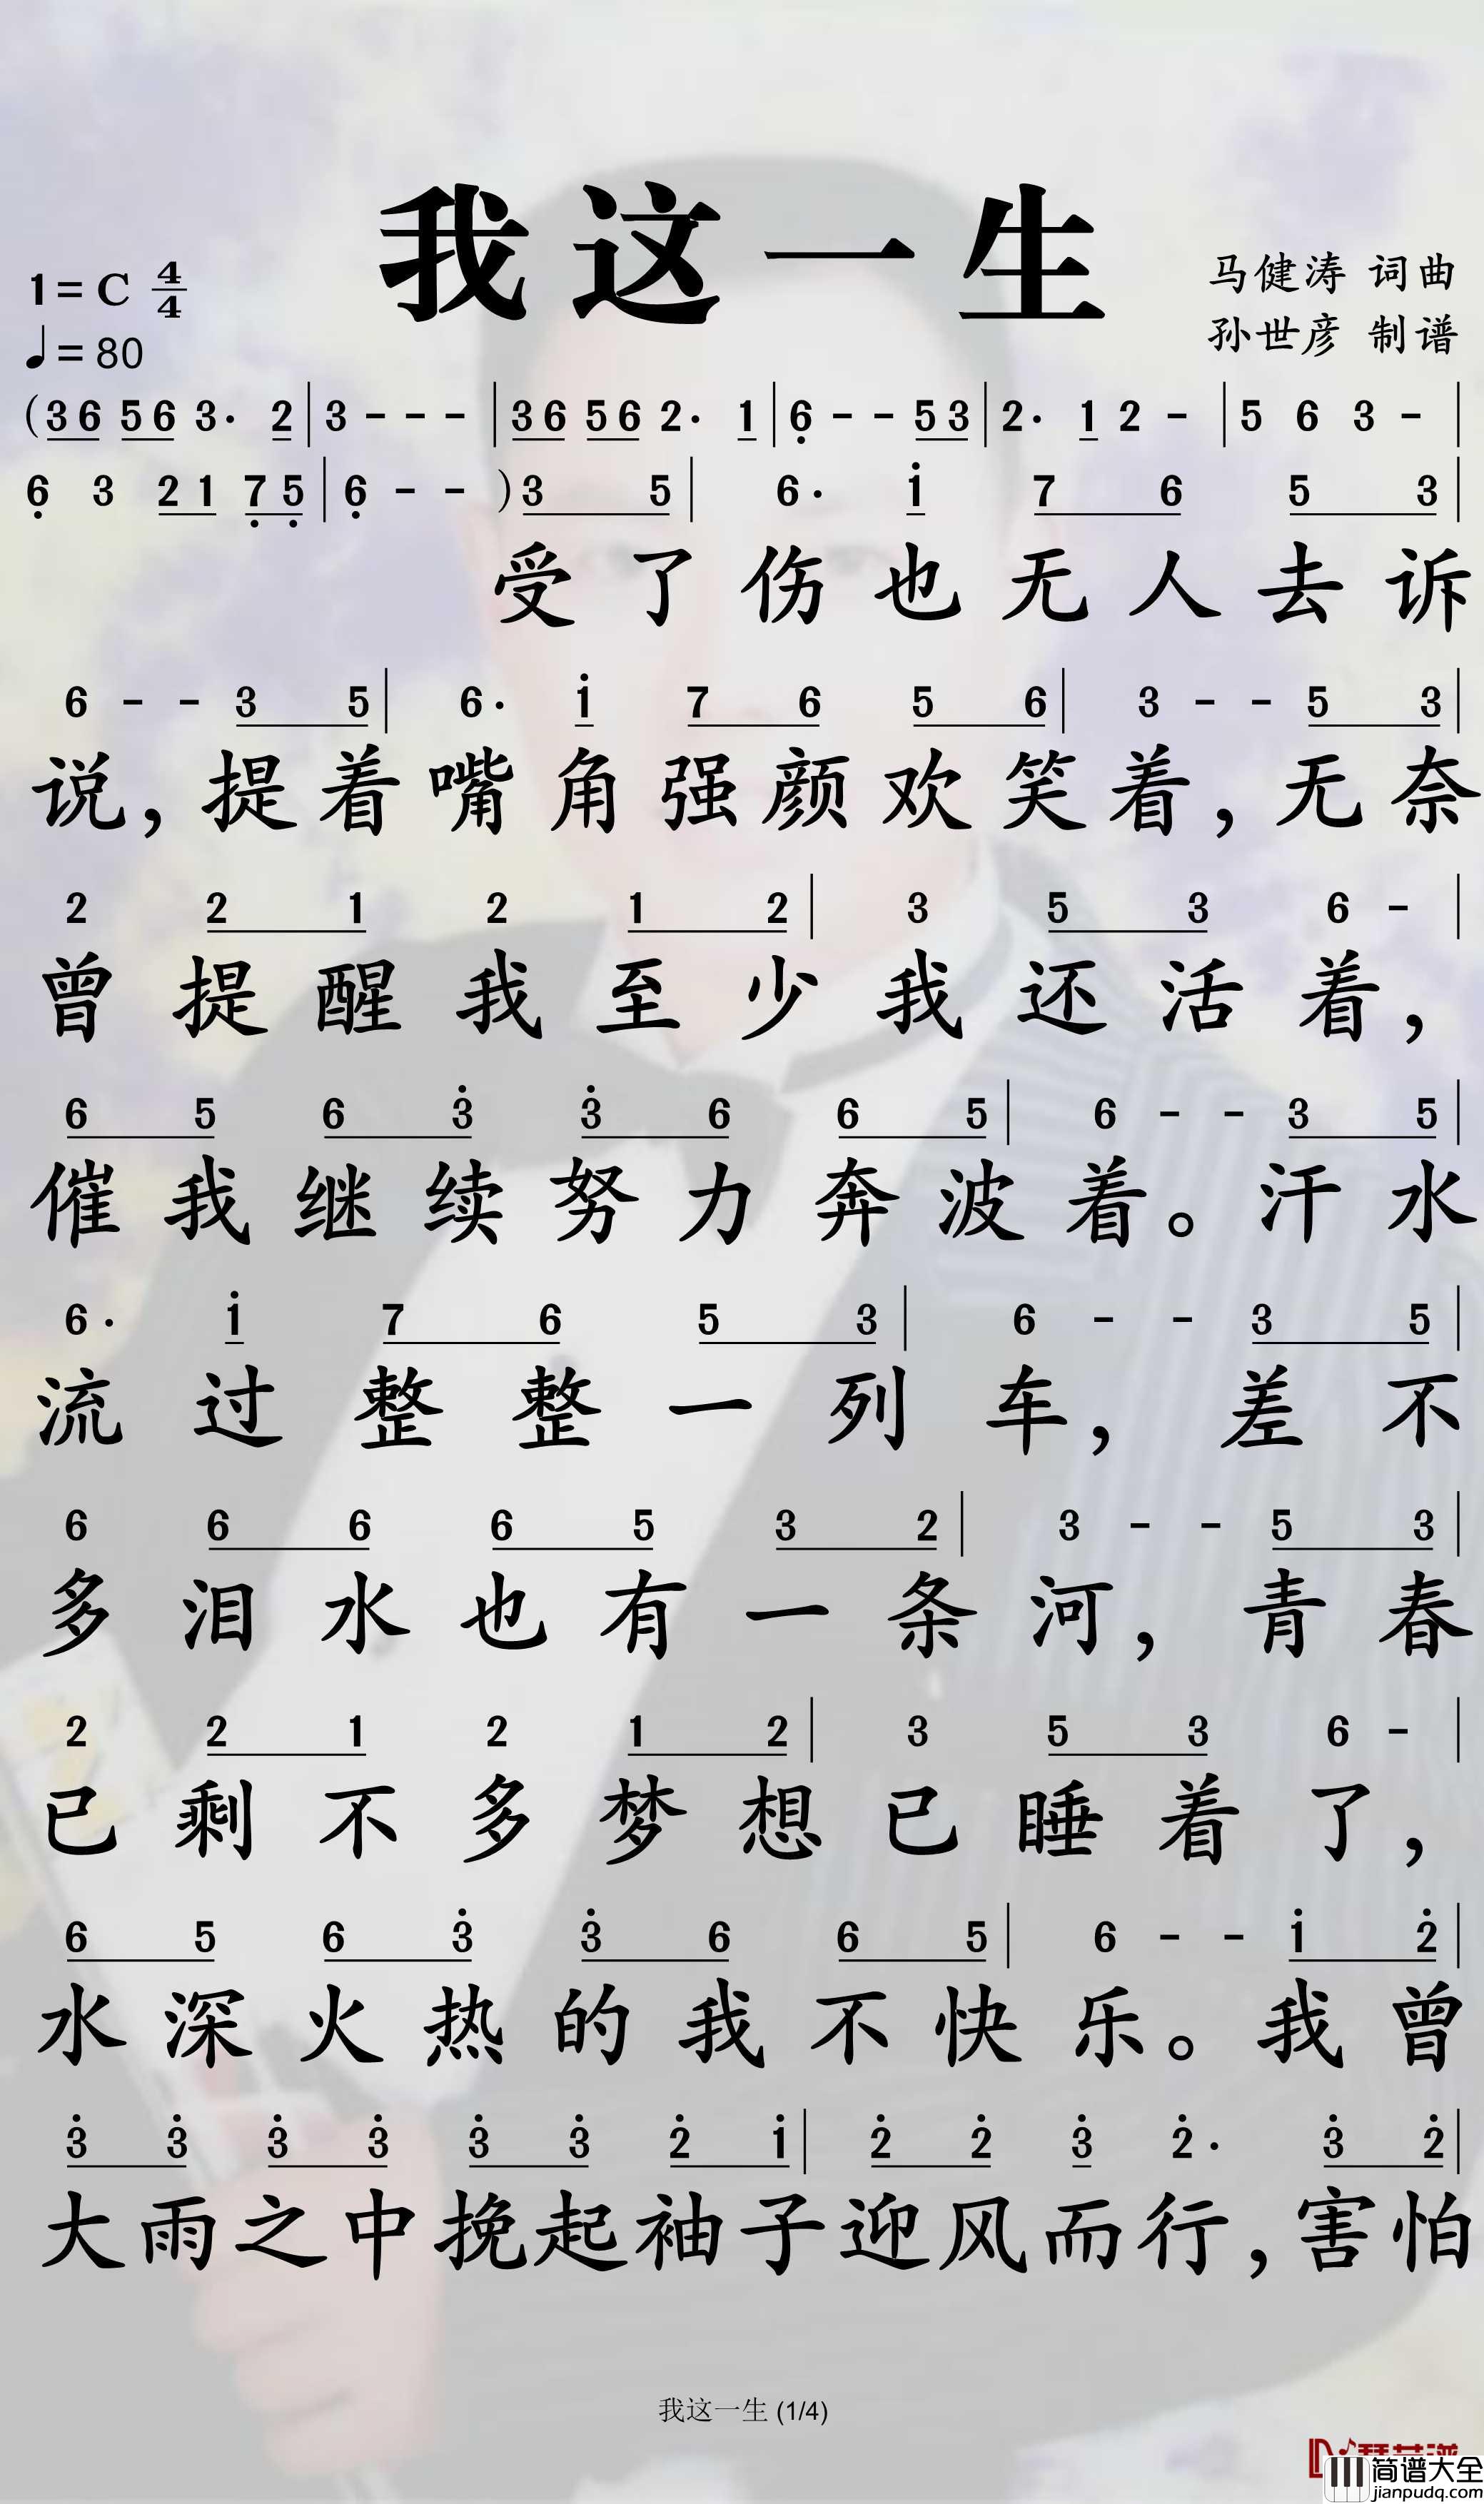 我这一生
1=C 4/4
♩=80
马健涛 词曲
孙世彦 制谱
(36 56 3· 2|3 - - -|36 56 2· 1|6̣ - - 53|2· 1 2 -|5 6 3 -|
6̣ 3 21 7̣5̣|6̣ - - )3 5|6· i̇ 7 6 5 3|
受了伤也无人去诉
6 - - 3 5|6· i̇ 7 6 5 6|3 - - 5 3|
说,提着嘴角强颜欢笑着,无奈
2 2 1 2 1 2|3 5 3 6 -|
曾提醒我至少我还活着,
6 5 6 3̇ 3̇ 6 6 5|6 - - 3 5|
催我继续努力奔波着。汗水
6· i̇ 7 6 5 3|6 - - 3 5|
流过整整一列车,差不
6 6 6 6 5 3 2|3 - - 5 3|
多泪水也有一条河,青春
2 2 1 2 1 2|3 5 3 6 -|
已剩不多梦想已睡着了,
6 5 6 3̇ 3̇ 6 6 5|6 - - i̇ 2̇|
水深火热的我不快乐。我曾
3̇ 3̇ 3̇ 3̇ 3̇ 3̇ 2̇ i̇|2̇ 2̇ 3̇ 2̇· 3̇ 2̇|
大雨之中挽起袖子迎风而行,害怕
我这一生 (1/4)
简谱大全
jianpudq.com